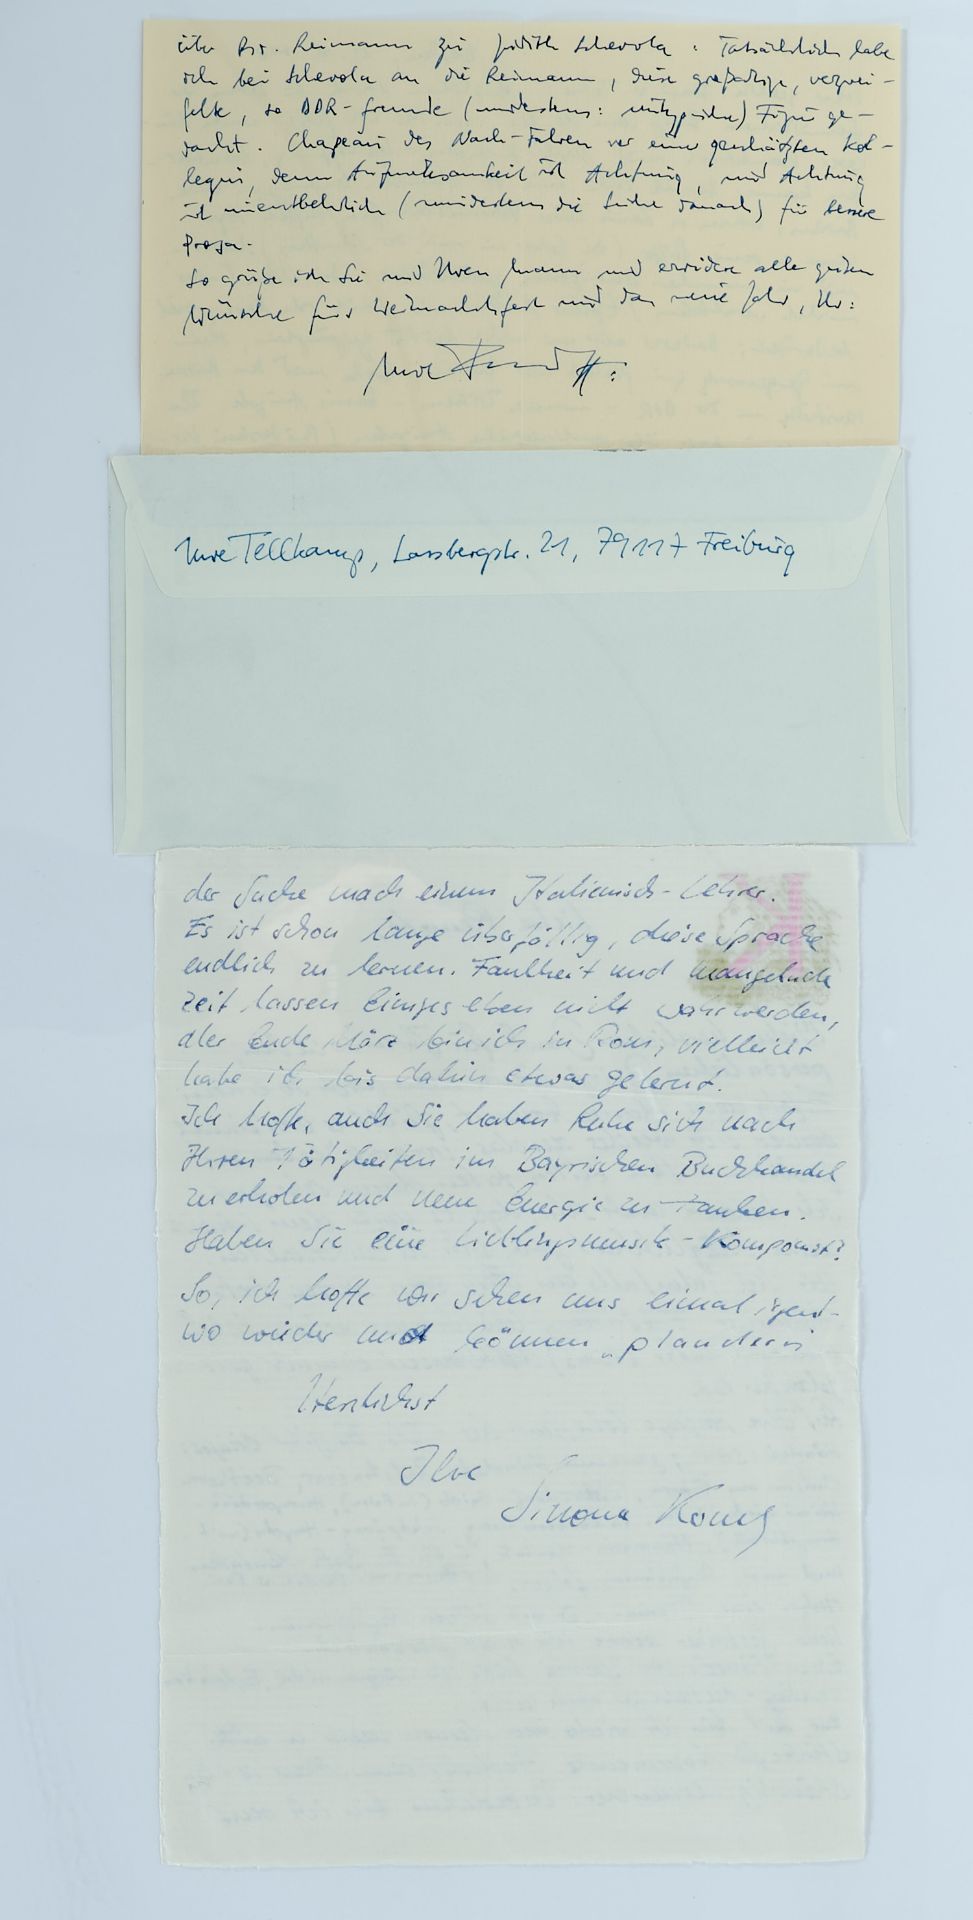 über Br. Reimann zu Judith Schevola: Tatsächlich habe
ich bei Schevola an die Reimann, diese großartige, verzwei-
felte, so DDR-fremde (mindestens: untypische) Figur ge-
dacht. Chapeau des Nach-Fahren vor einer geschätzten Kol-
legin, denn Aufmerksamkeit ist Achtung, und Achtung
ist unentbehrlich (mindestens die Suche danach) für bessere
Prosa.
So grüße ich Sie und Ihren Mann und erwidere alle guten
Wünsche für Weihnachtsfest und das neue Jahr, Ihr:
Uwe Tellkamp, 79117 Freiburg
der Suche nach einem Italienisch-Lehrer.
Es ist schon lange überfällig, diese Sprache
endlich zu lernen. Faulheit und mangelnde
Zeit lassen einiges eben nicht wahr werden,
aber Ende März bin ich in Rom, vielleicht
habe ich bis dahin etwas gelernt.
Ich hoffe, auch Sie haben Ruhe sich nach
Ihren Tätigkeiten im Bayrischen Buchhandel
zu erholen und neue Energie zu tanken.
Haben Sie eine Lieblingsmusik-Komponist?
So, ich hoffe wir sehen uns eimal irgend-
wo wieder und können „plaudern
Herzlichst
Ihre
Simona